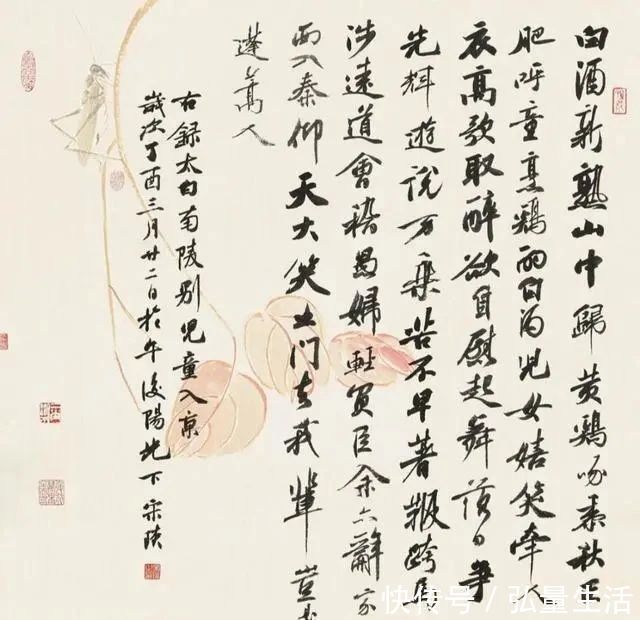 白酒新熟山中歸黄鷄啄黍秋正
肥呼童烹鷄酌白酒兒女嬉笑牽人
衣高歌取醉欲自慰起舞落日爭
光輝遊說万乘苦不早著鞭跨馬
涉遠道會稽愚婦輕買臣余亦辭家
西入秦仰天大笑出门去我輩豈是
蓬蒿人
右録太白南陵别兒童入京
歲次丁酉三月廿二日於午後陽光下宋
快传号/弘量生活